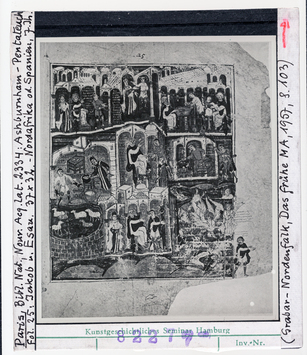 Paris, Bibl. Nat., Nouv. Acq. lat. 2334; Ashburnham-Pentateuch
fol. 25: Jakob u. Esau. 37x32 - Nordafrika od. Spanien, 7. Jh.
25
Kunstgeschichtliches Seminar Hamburg
Inv.-Nr.
(Grabar-Nordenfalk, Das frühe MA, 1957, S. 103)